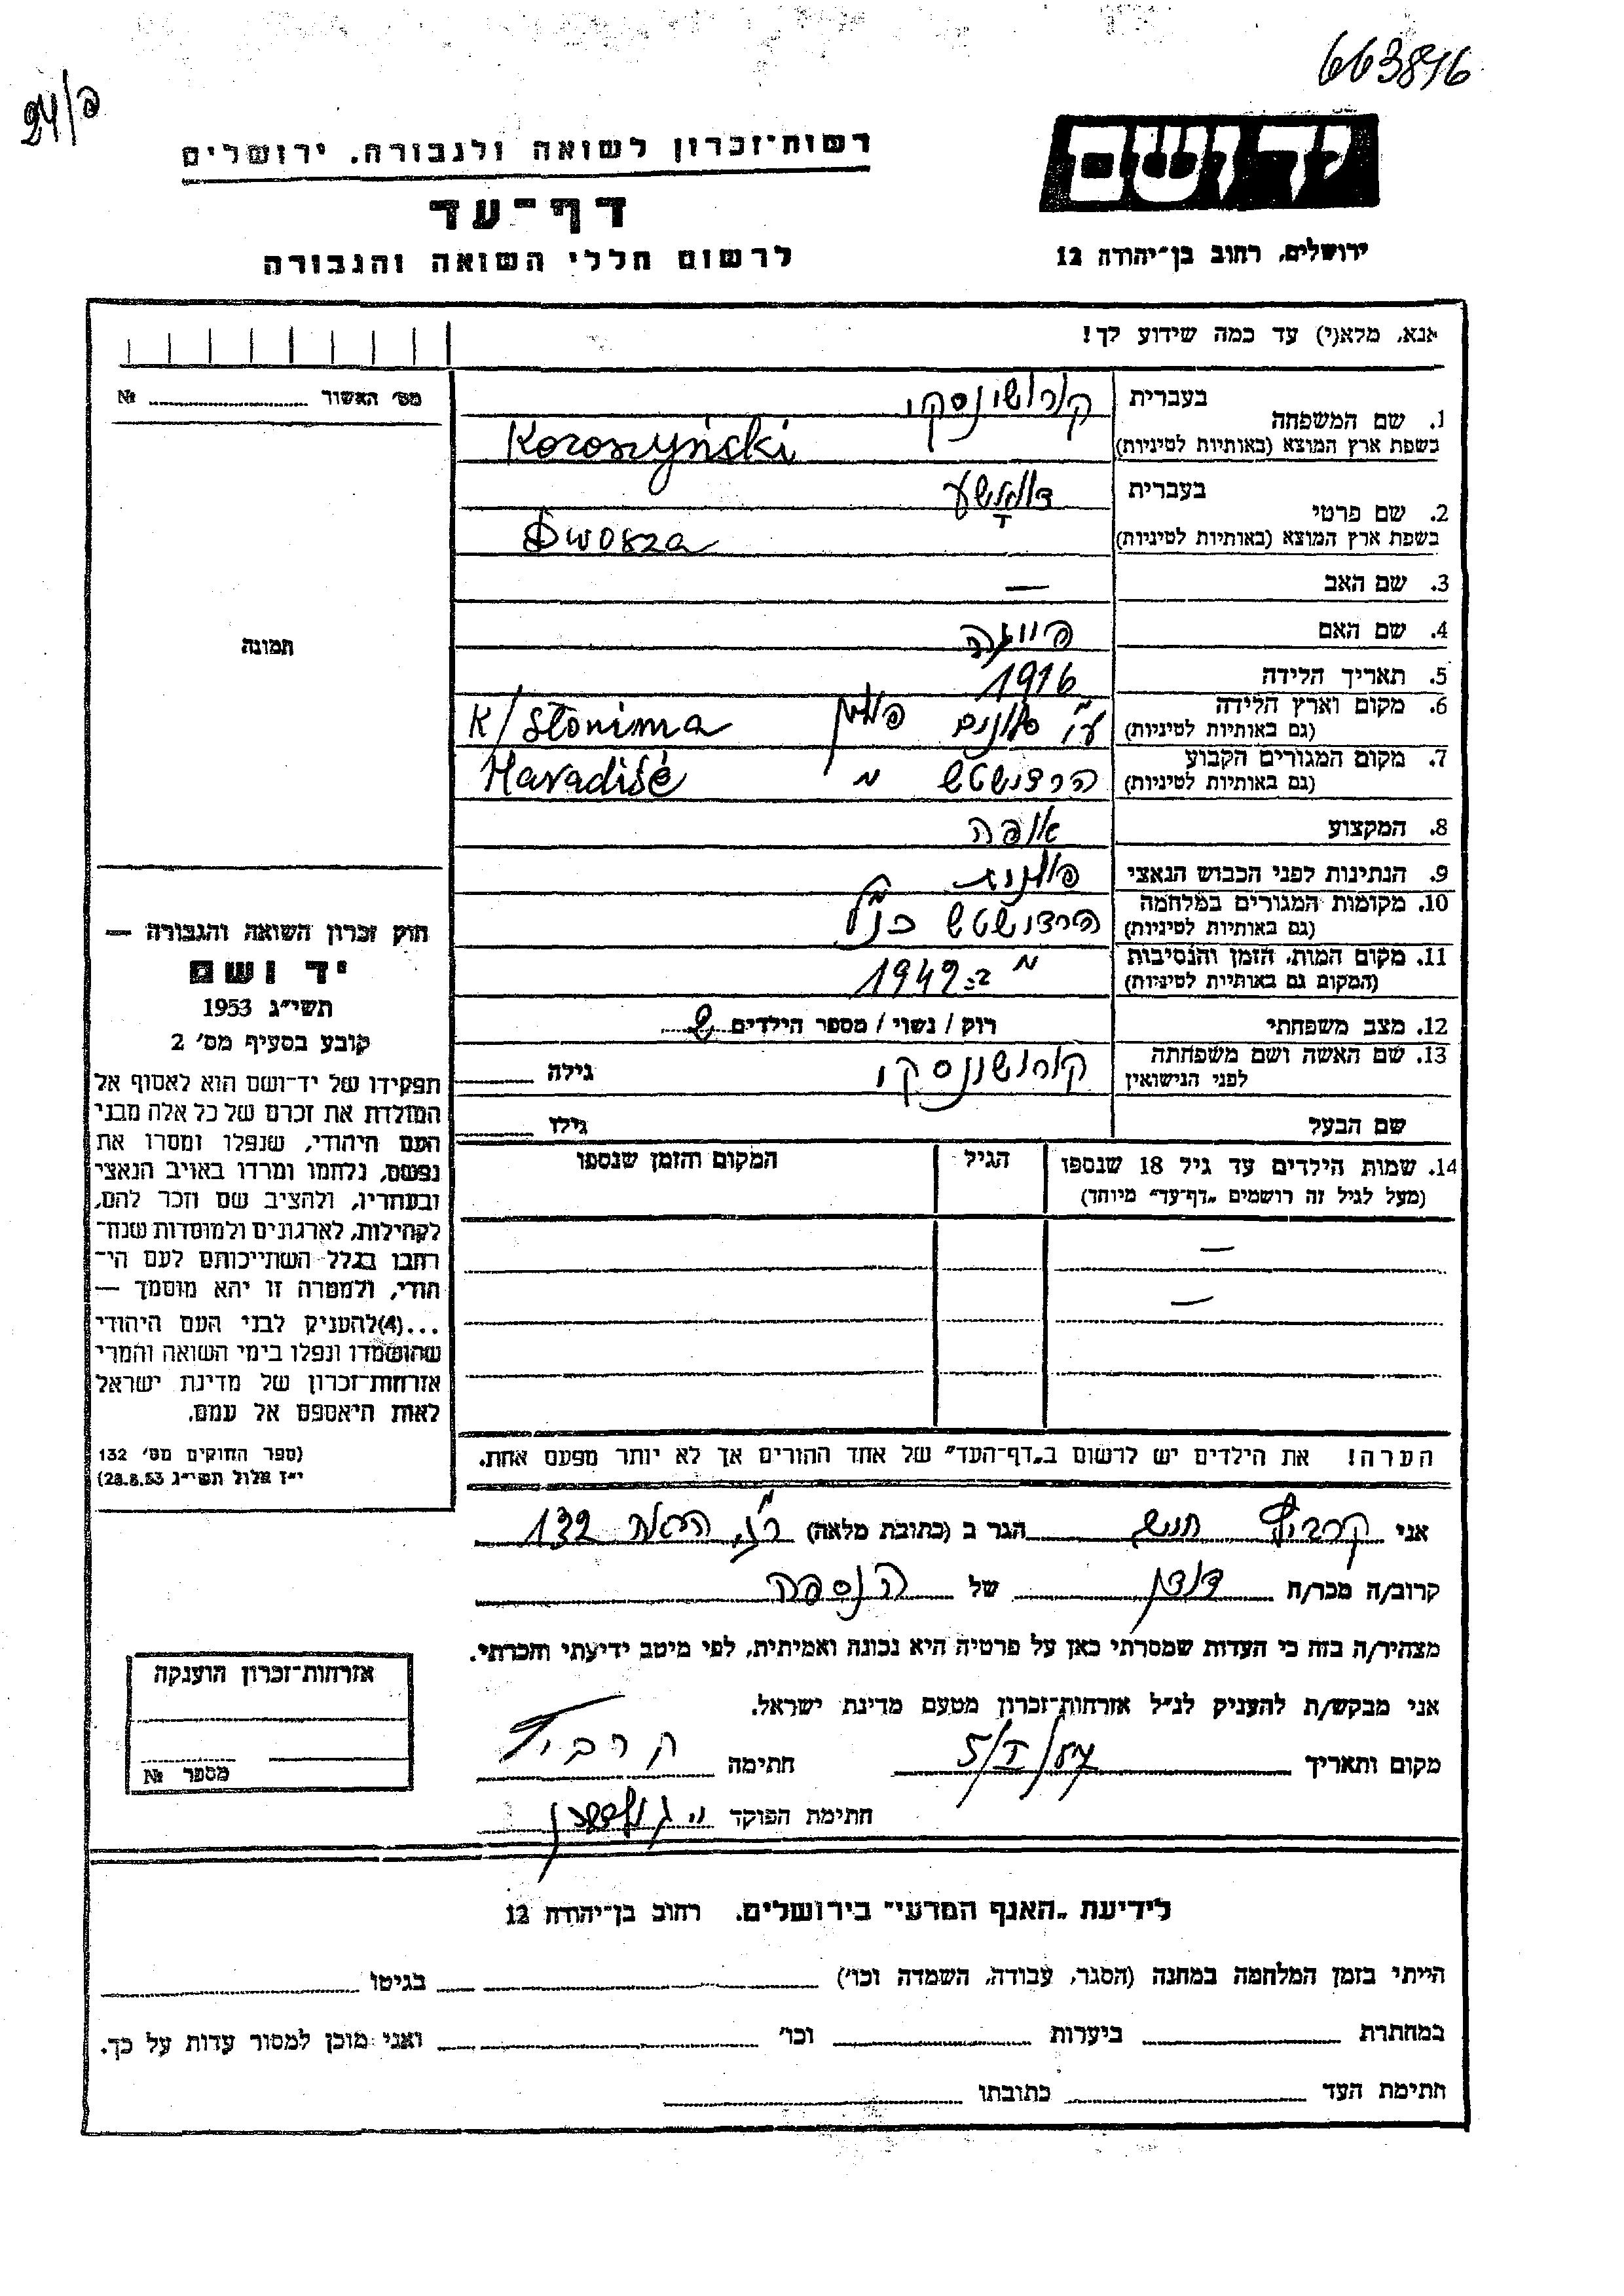 663816
24/פ
רשות־זכרון לשואה ולגבורה. ירושלים
דף־עד
לרשום חללי השואה והגבורה
יד ושם
ירושלים, רחוב בן־יהודה 12
אנא, מלא(י) עד כמה שידוע לך!
מס׳ האשור № 
1. שם המשפחה
בעברית
קורושינסקי
בשפת ארץ המוצא (באותיות לטיניות)
Koroszyński
2. שם פרטי
בעברית
בשפת ארץ המוצא (באותיות לטיניות)
Dwosza
3. שם האב —
4. שם האם
5. תאריך הלידה 1916
6. מקום וארץ הלידה
(גם באותיות לטיניות)
ע״י סלונים פולין K/Słonima
7. מקום המגורים הקבוע
(גם באותיות לטיניות)
Haradišč
8. המקצוע אופה
9. הנתינות לפני הכבוש הנאצי פולנית
10. מקומות המגורים במלחמה
(גם באותיות לטיניות)
כנ״ל
11. מקום המות, הזמן והנסיבות
(המקום גם באותיות לטיניות)
ב־1942
12. מצב משפחתי רוק / נשוי / מספר הילדים 2
13. שם האשה ושם משפחתה
לפני הנישואין
קורושינסקי גילה
שם הבעל גילו
14. שמות הילדים עד גיל 18 שנספו הגיל המקום והזמן שנספו
(מעל לגיל זה רושמים „דף־עד” מיוחד)
—
—
הערה! את הילדים יש לרשום ב„דף־העד” של אחד ההורים אך לא יותר מפעם אחת.
תמונה
חוק זכרון השואה והגבורה —
יד ושם
תשי״ג 1953
קובע בסעיף מס׳ 2
תפקידו של יד־ושם הוא לאסוף אל
המולדת את זכרם של כל אלה מבני
העם היהודי, שנפלו ומסרו את
נפשם, נלחמו ומרדו באויב הנאצי
ובעוזריו, ולהציב שם וזכר להם,
לקהילות, לארגונים ולמוסדות שנח־
רבו בגלל השתייכותם לעם הי־
הודי, ולמטרה זו יהא מוסמך —
...(4)להעניק לבני העם היהודי
שהושמדו ונפלו בימי השואה והמרי
אזרחות־זכרון של מדינת ישראל
לאות היאספם אל עמם.
(ספר החוקים מס׳ 132
י״ז אלול תשי״ג 28.8.53)
אני הגר ב (כתובת מלאה) 132
קרוב/ה מכר/ה דודן של הנספה
מצהיר/ה בזה כי העדות שמסרתי כאן על פרטיה היא נכונה ואמיתית, לפי מיטב ידיעתי והכרתי.
אני מבקש/ת להעניק לנ״ל אזרחות־זכרון מטעם מדינת ישראל.
מקום ותאריך חתימה
חתימת הפוקד
אזרחות־זכרון הוענקה
מספר №
לידיעת „האגף המדעי” בירושלים. רחוב בן־יהודה 12
הייתי בזמן המלחמה במחנה (הסגר, עבודה, השמדה וכו׳) בגיטו
במחתרת ביערות וכו׳ ואני מוכן למסור עדות על כך.
חתימת העד כתובתו